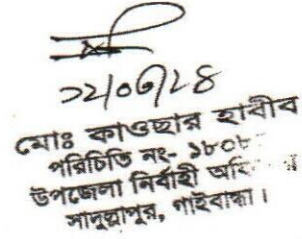 ২২/০৩/২৪
মোঃ কাওছার হাবীব
পরিচিতি নং- ১৮০৮
উপজেলা নির্বাহী অফি
সাদুল্লাপুর, গাইবান্ধা।